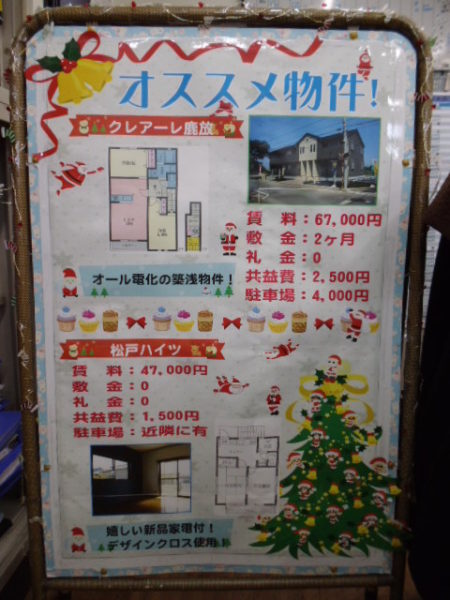 オススメ物件!
クレアーレ鹿放
賃　料：67,000円
敷　金：2ヶ月
礼　金：0
共益費：2,500円
駐車場：4,000円
オール電化の築浅物件！
松戸ハイツ
賃　料：47,000円
敷　金：0
礼　金：0
共益費：1,500円
駐車場：近隣に有
嬉しい新品家電付！
デザインクロス使用！